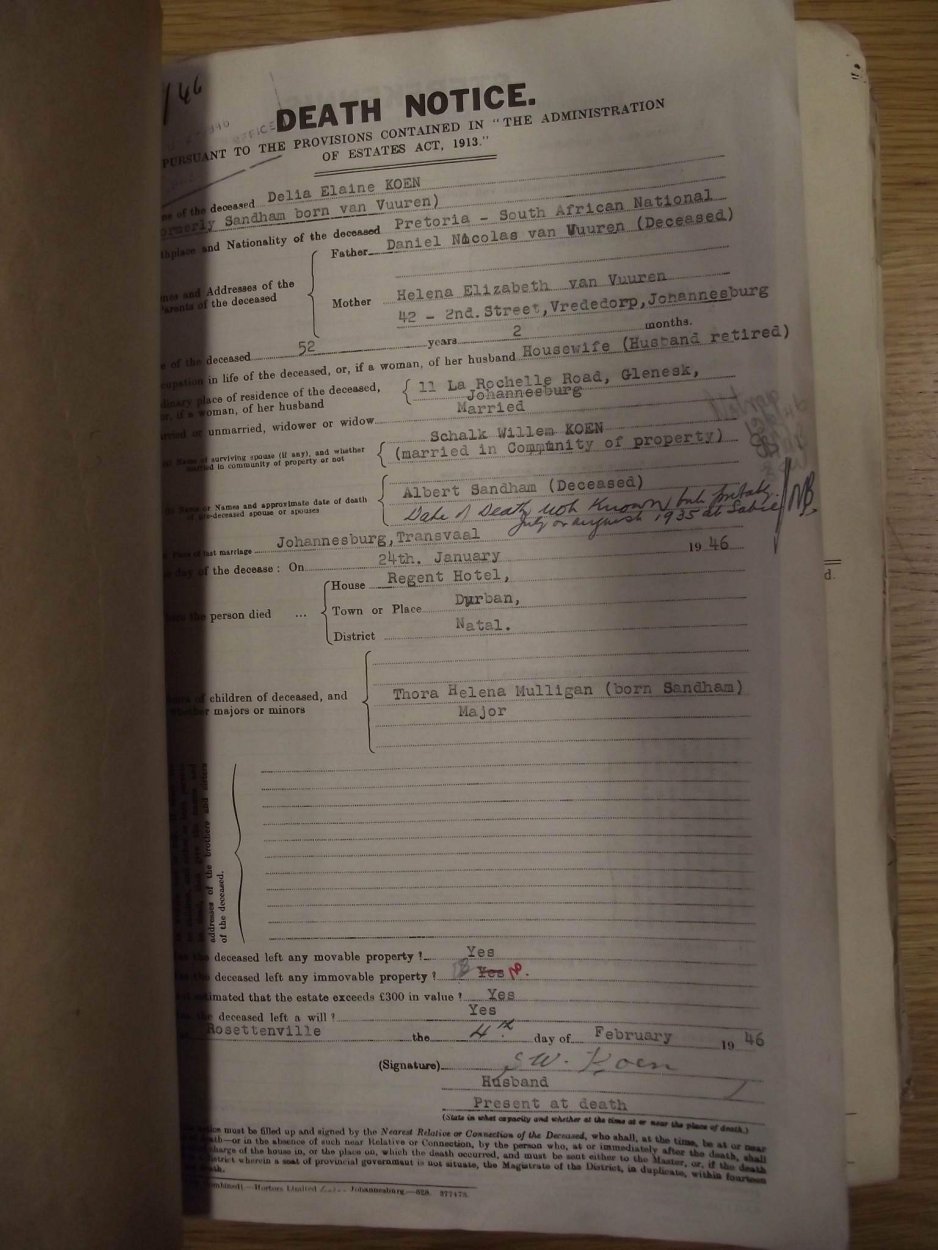 /46
DEATH NOTICE.
PURSUANT TO THE PROVISIONS CONTAINED IN "THE ADMINISTRATION
OF ESTATES ACT, 1913."
of the deceased Delia Elaine KOEN
ormerly Sandham born van Vuuren)
thplace and Nationality of the deceased Pretoria - South African National
Father Daniel Nicolas van Vuuren (Deceased)
mes and Addresses of the
Parents of the deceased
Mother Helena Elizabeth van Vuuren
42 - 2nd. Street, Vrededorp, Johannesburg
e of the deceased 52 years 2 months.
cupation in life of the deceased, or, if a woman, of her husband Housewife (Husband retired)
dinary place of residence of the deceased,
or, if a woman, of her husband
11 La Rochelle Road, Glenesk,
Johannesburg
rried or unmarried, widower or widow Married
Name of surviving spouse (if any), and whether
married in community of property or not
Schalk Willem KOEN
(married in Community of property)
Name or Names and approximate date of death
of pre-deceased spouse or spouses
Albert Sandham (Deceased)
Date of Death not Known but probably
July or august 1935 at Sabie
Place of last marriage Johannesburg, Transvaal
day of the decease : On 24th. January 19 46
here the person died ...
House Regent Hotel,
Town or Place Durban,
District Natal.
of children of deceased, and
whether majors or minors
Thora Helena Mulligan (born Sandham)
Major
addresses of the brothers and sisters
of the deceased.
as the deceased left any movable property ? Yes
as the deceased left any immovable property ? Yes No.
estimated that the estate exceeds £300 in value ? Yes
the deceased left a will ? Yes
Rosettenville the 4th day of February 19 46
(Signature) S.W. Koen
Husband
Present at death
(State in what capacity and whether at the time at or near the place of death.)
must be filled up and signed by the Nearest Relative or Connection of the Deceased, who shall, at the time, be at or near
death—or in the absence of such near Relative or Connection, by the person who, at or immediately after the death, shall
charge of the house in, or the place on, which the death occurred, and must be sent either to the Master, or, if the death
district wherein a seat of provincial government is not situate, the Magistrate of the District, in duplicate, within fourteen
death.
Hortors Limited Johannesburg.—828. 377473.
d.